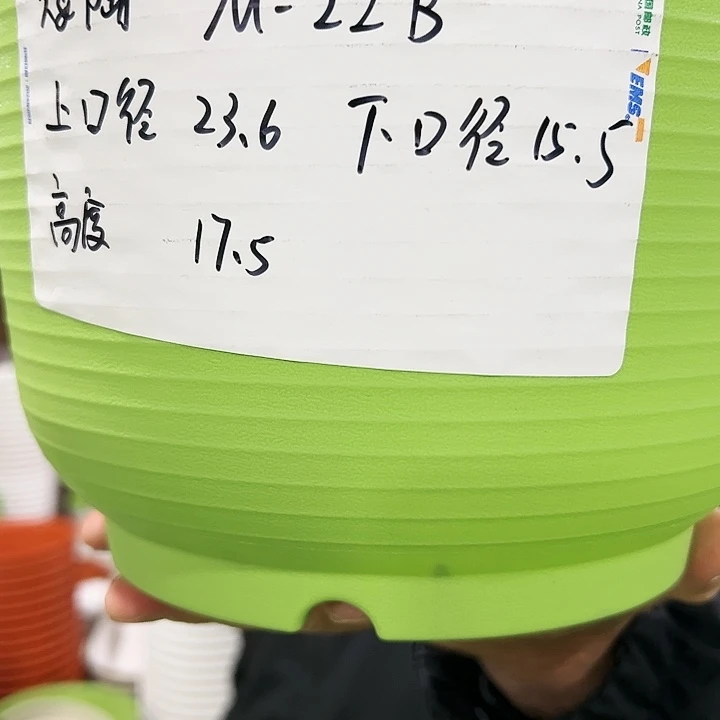 M-22B
上口径 23.6 下口径 15.5
高度 17.5
国邮政
NA POST
EMS